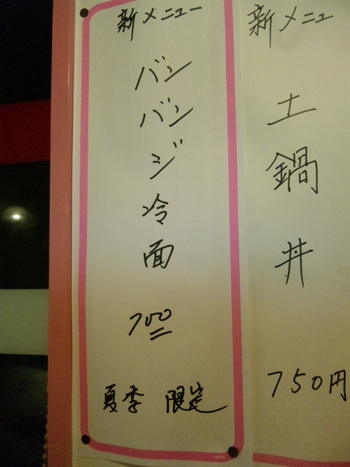 新メニュー
バンバンジ冷面
700
夏季 限定
新メニュ
土鍋丼
750円